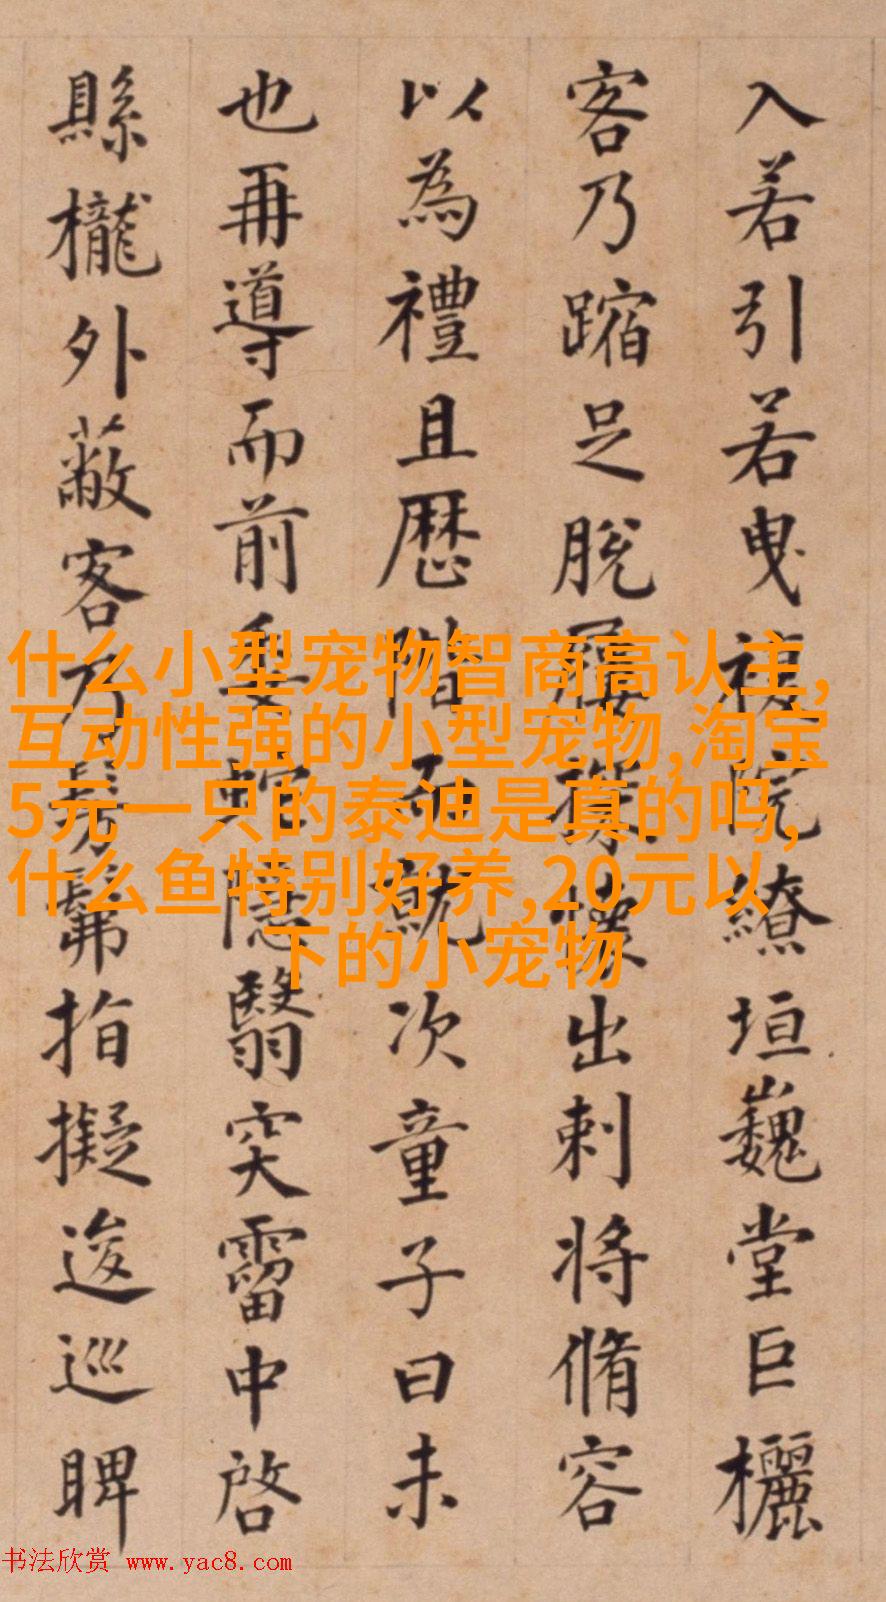 入若引若曳複院繚垣巍堂巨欐
客乃蹜足脫屨懷出刺將脩容
以為禮且歷階而就次童子曰未
也再導而前蛇隱翳突霤中啓
縣櫳外蔽客乃髣髴指擬逡巡睥
什么小型宠物智商高认主,
互动性强的小型宠物,淘宝
5元一只的泰迪是真的吗,
什么鱼特别好养,20元以
下的小宠物
书法欣赏 www.yac8.com